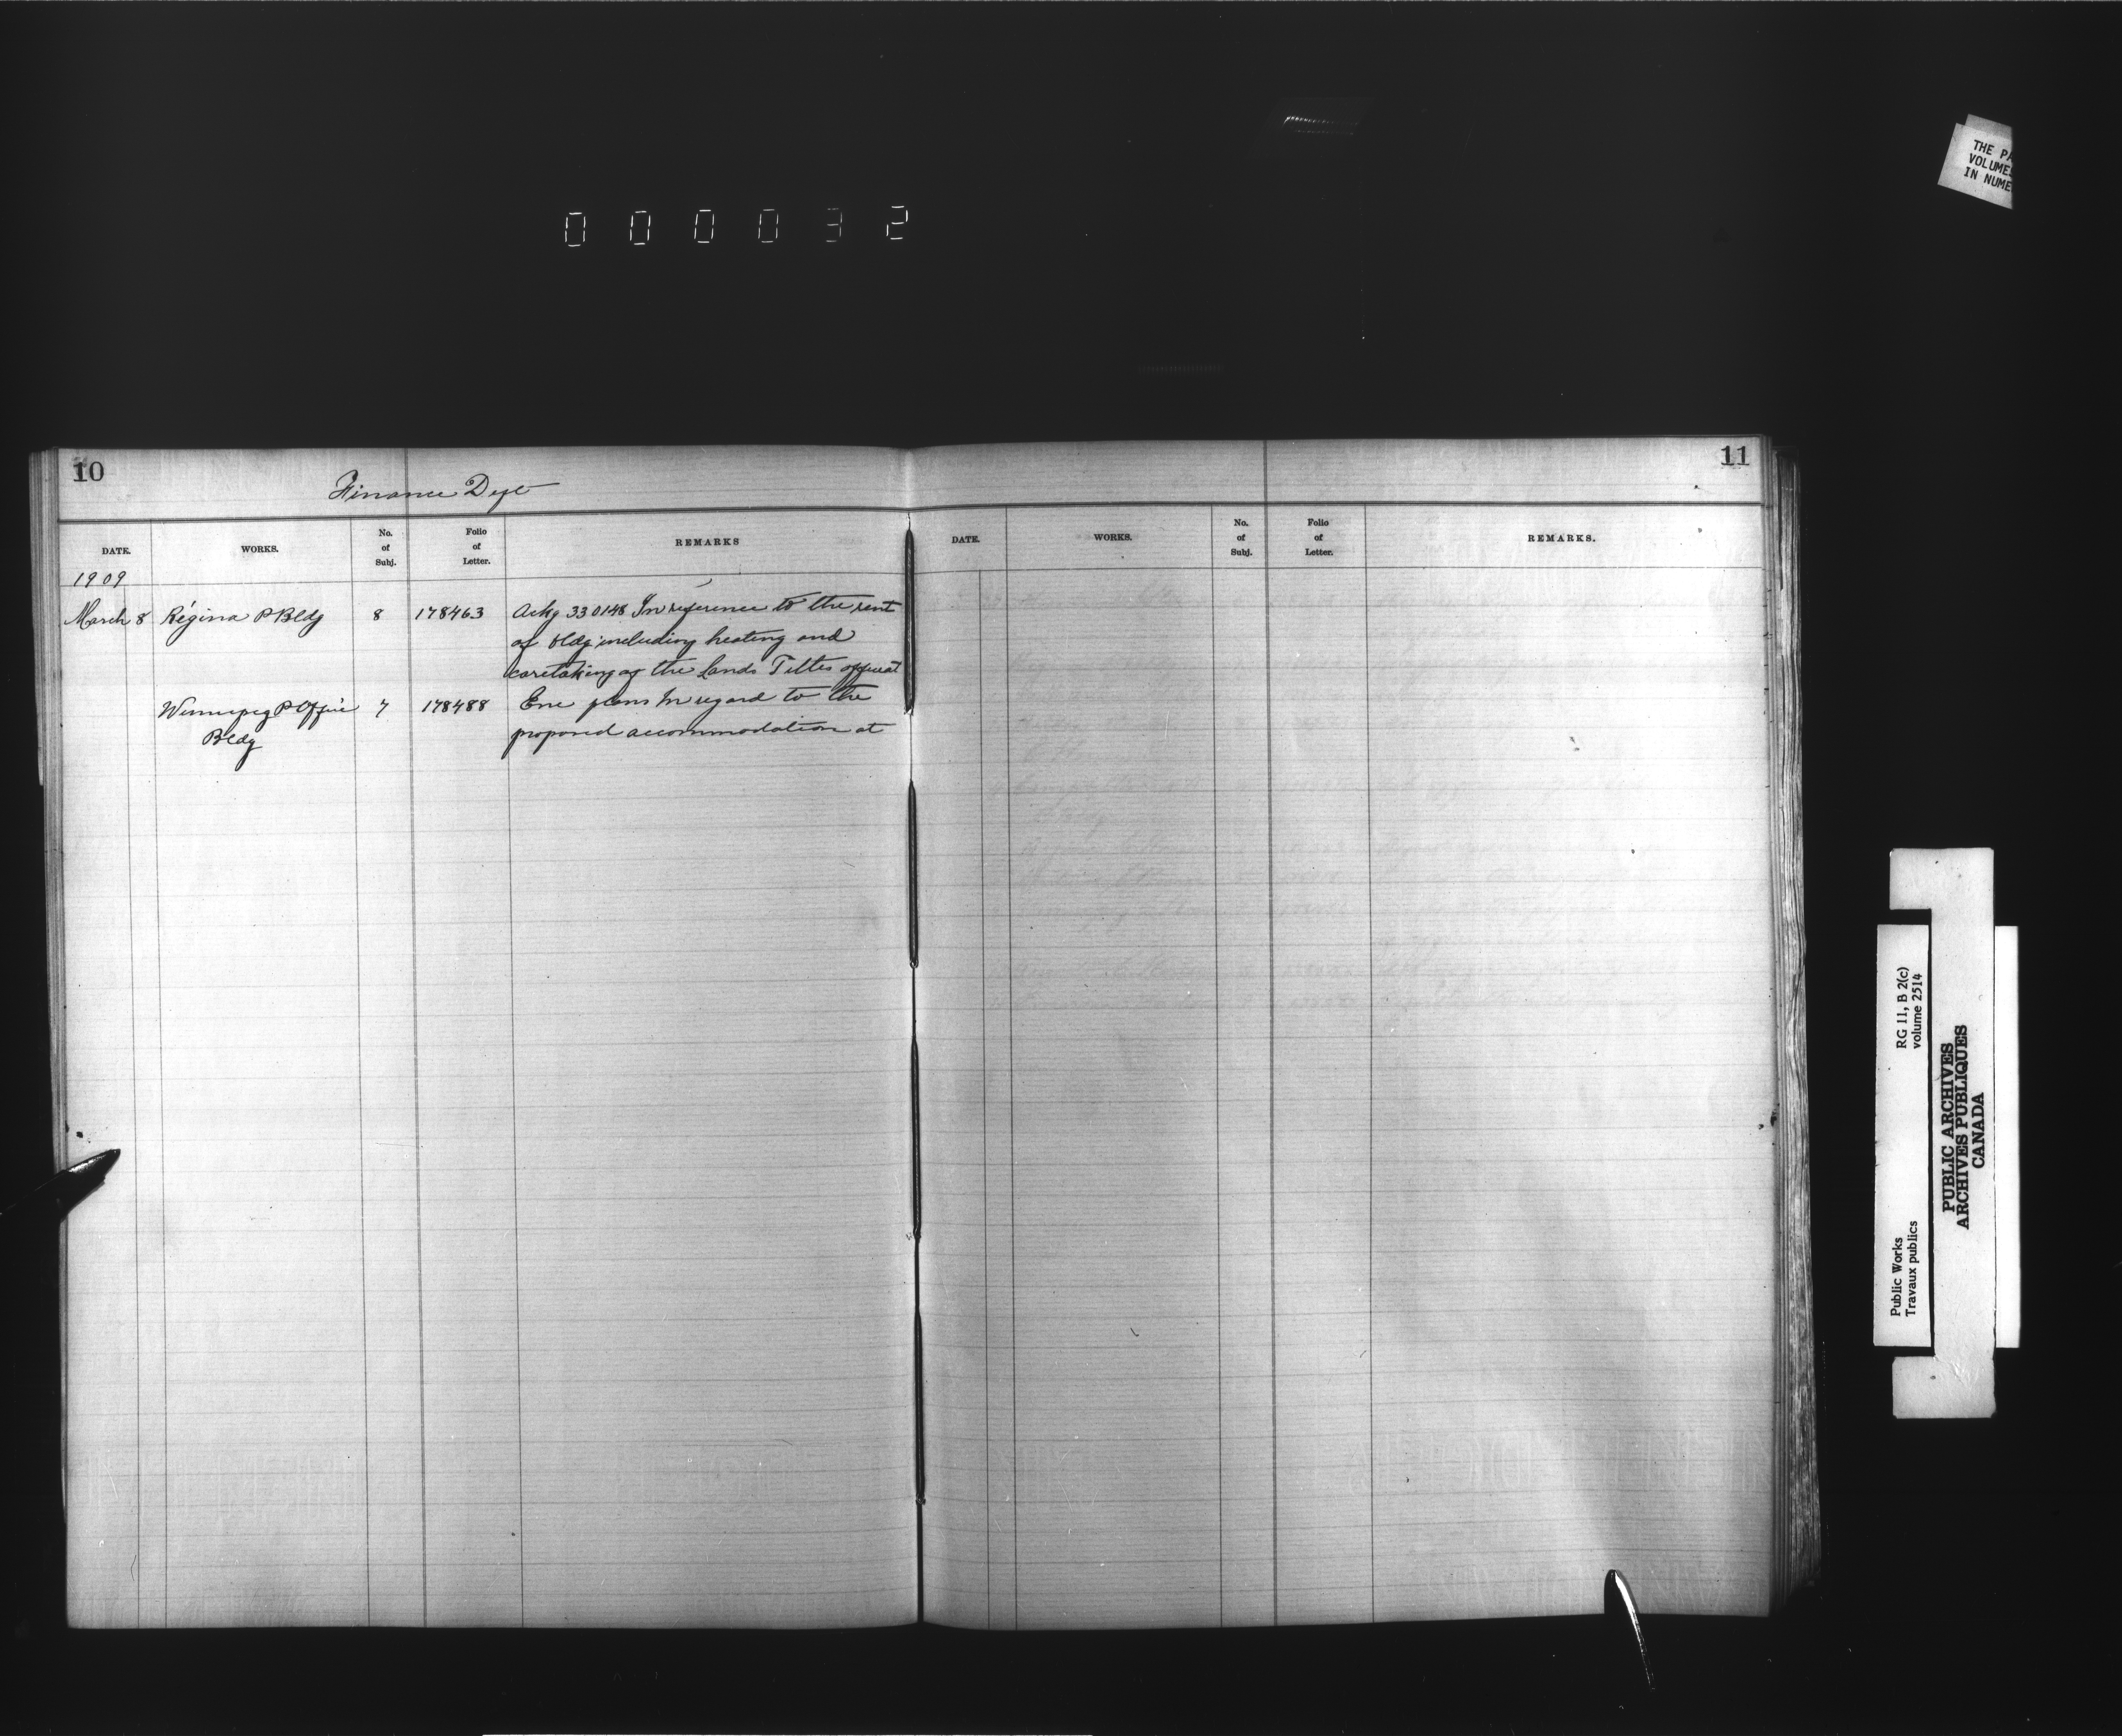 000032
THE PA
VOLUME
IN NUME
10
Finance Dept
DATE.
WORKS.
No.
of
Subj.
Folio
of
Letter.
REMARKS
1909
March 8 Régina P Bldg 8 178463 Ackg 330148 In reference to the rent
of bldg including heating and
caretaking of the Lands Titles office at
Winnipeg P Office 7 178488 Enc plans In regard to the
Bldg proposed accommodation at
11
DATE.
WORKS.
No.
of
Subj.
Folio
of
Letter.
REMARKS.
Public Works RG 11, B 2(c)
Travaux publics volume 2514
PUBLIC ARCHIVES
ARCHIVES PUBLIQUES
CANADA